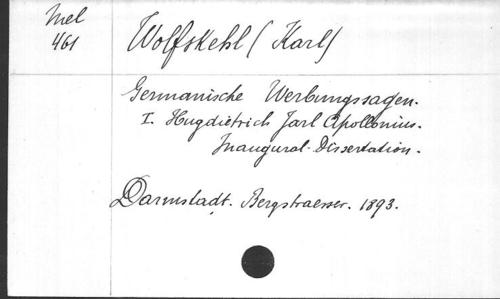 Mel
461
Wolfskehl (Karl)
Germanische Werbungssagen.
I. Hugdietrich Jarl Apollonius.
Inaugural-Dissertation.
Darmstadt. Bergstraesser. 1893.